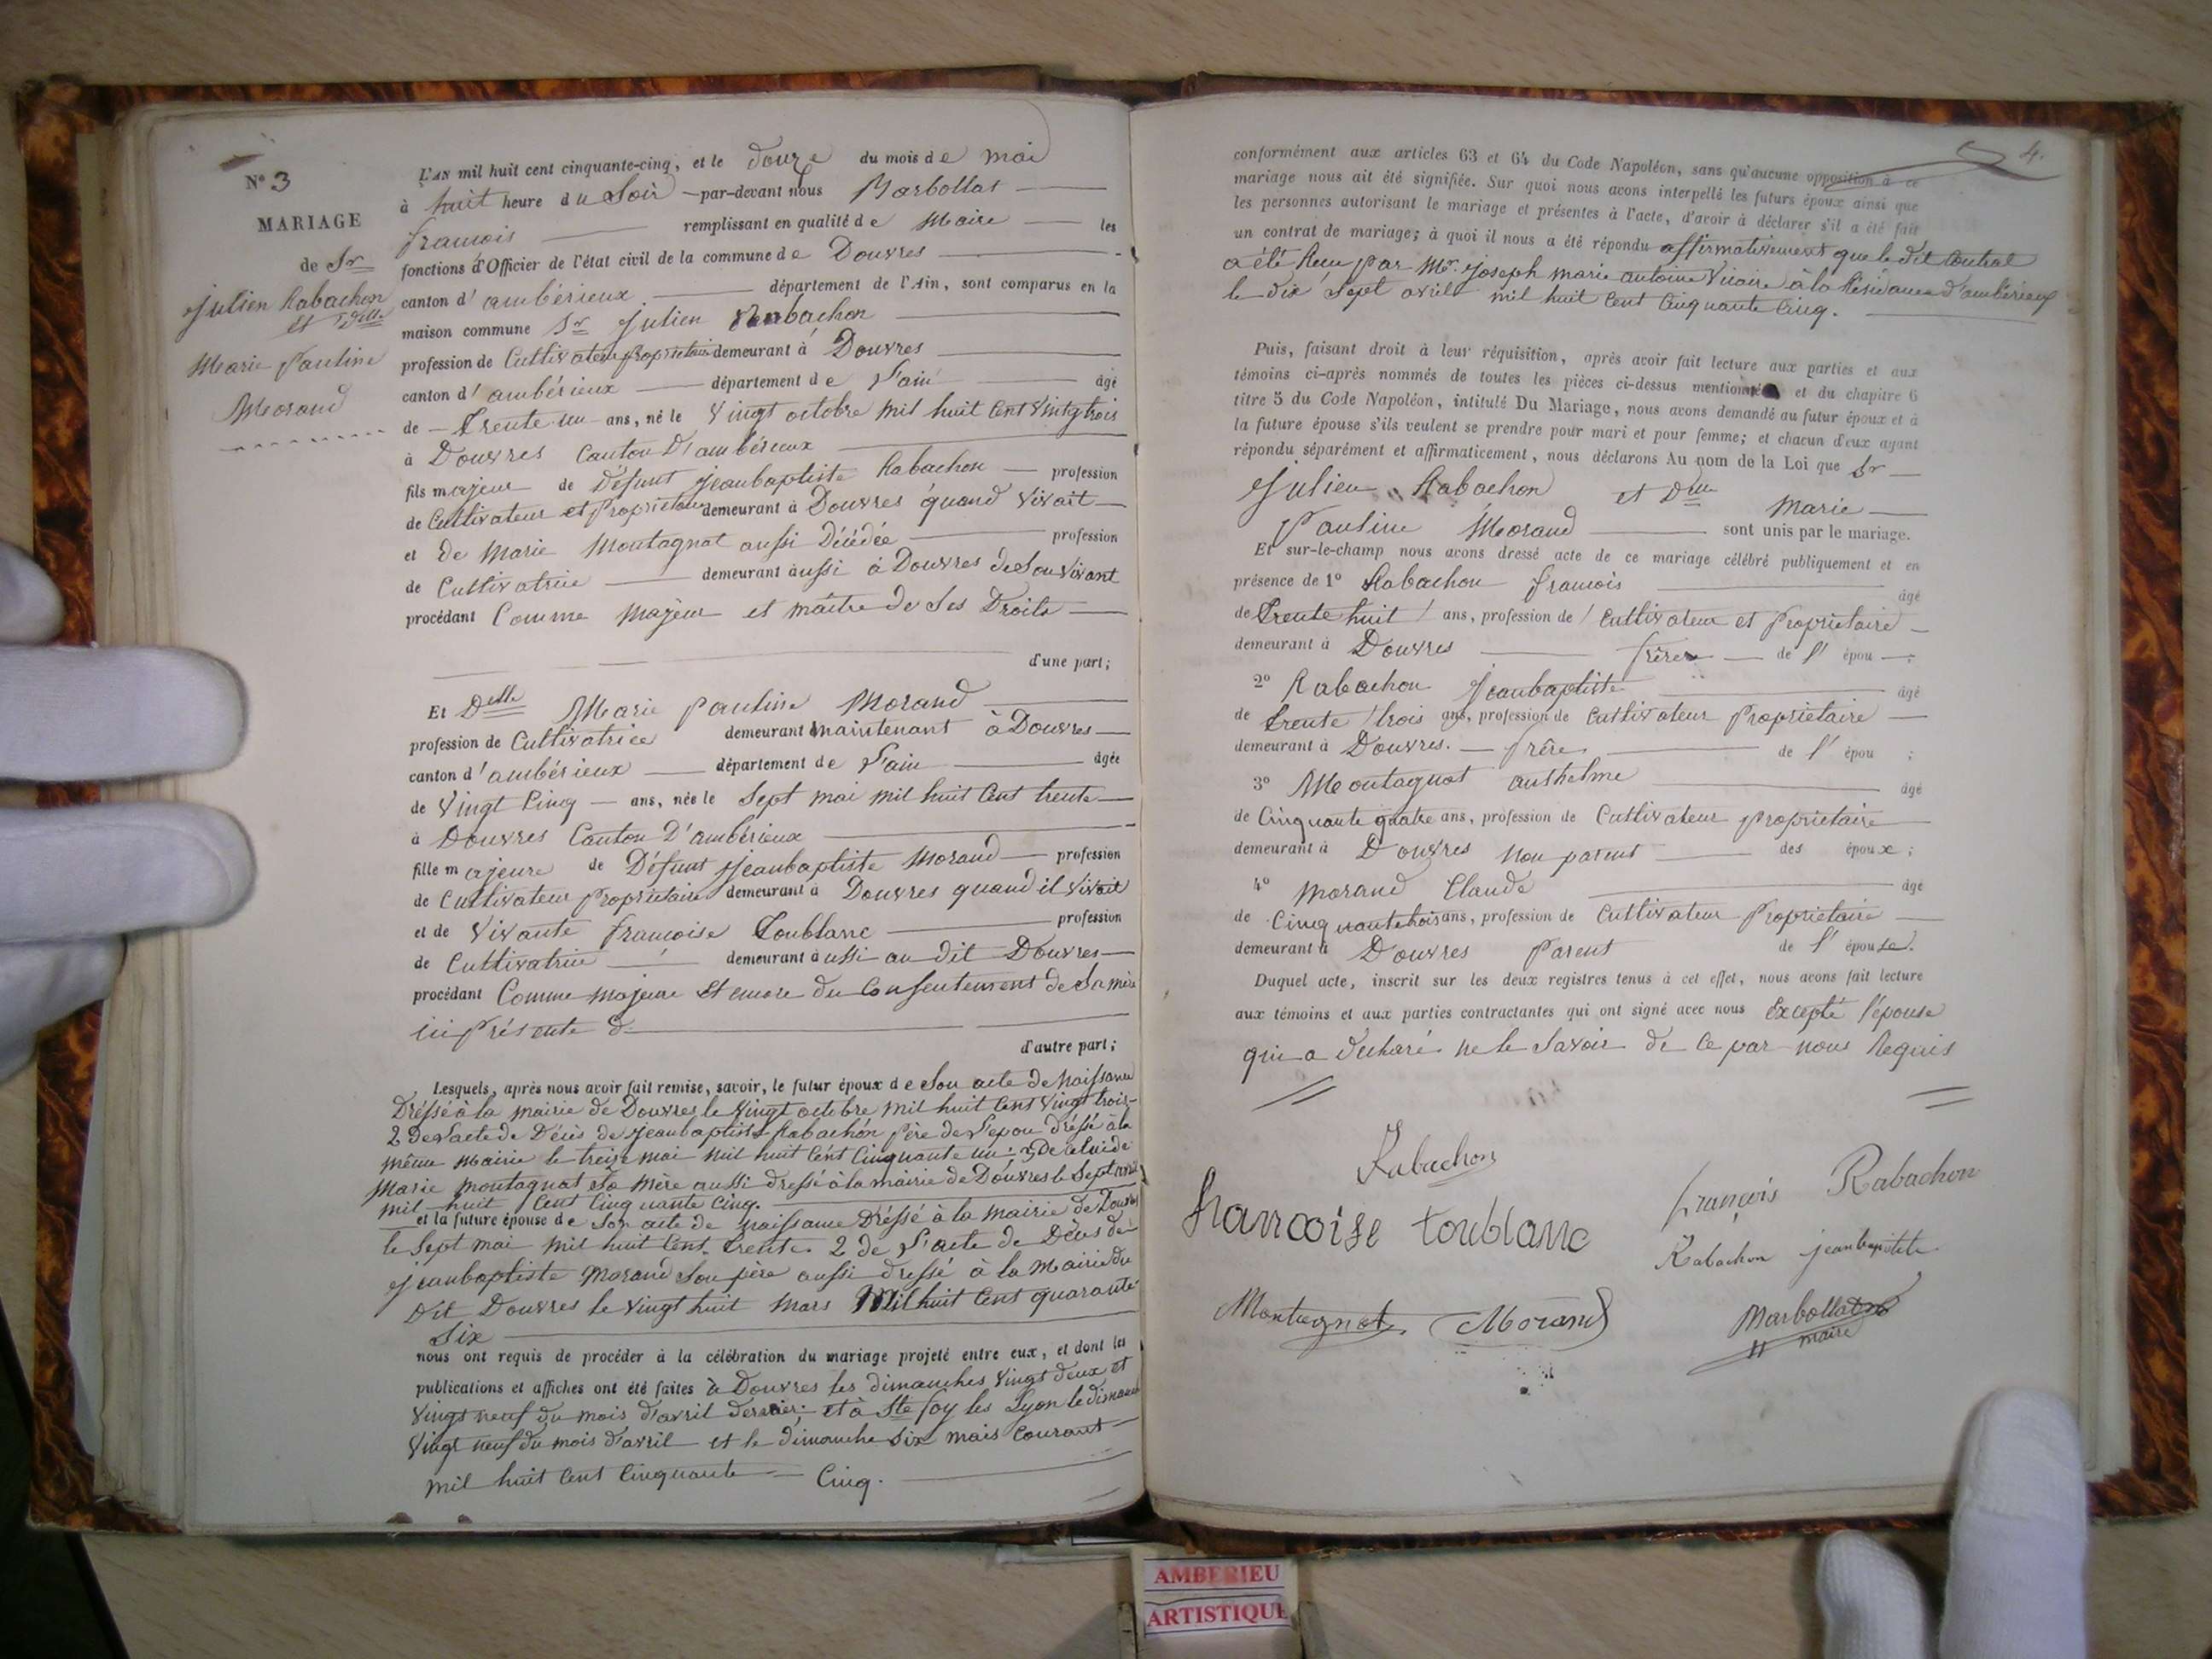 N° 3
MARIAGE
de Sr
Julien Rabachon
et Dlle
Marie Pauline
Morand
L'AN mil huit cent cinquante-cinq, et le douze du mois de mai
à huit heure du Soir par-devant nous Marbollat
francois remplissant en qualité de Maire les
fonctions d'Officier de l'état civil de la commune de Douvres
canton d'ambérieux département de l'Ain, sont comparus en la
maison commune Sr Julien Rabachon
profession de Cultivateur proprietaire demeurant à Douvres
canton d'ambérieux département de l'ain âgé
de Trente un ans, né le Vingt octobre mil huit Cent Vintgtrois
à Douvres Canton D'ambérieux
fils majeur de Défunt Jeanbaptiste Rabachon profession
de Cultivateur et Proprietaire demeurant à Douvres quand Vivait
et de Marie Montagnat aussi Décédée profession
de Cultivatrice demeurant aussi à Douvres de Son Vivant
procédant Comme Majeur et maître de Ses Droits
d'une part;
Et Delle Marie Pauline Morand
profession de Cultivatrice demeurant maintenant à Douvres
canton d'ambérieux département de l'ain âgée
de Vingt Cinq ans, née le Sept mai mil huit Cent trente
à Douvres Canton D'ambérieux
fille majeure de Défunt Jeanbaptiste Morand profession
de Cultivateur Proprietaire demeurant à Douvres quand il Vivait
et de Vivante françoise Toublanc profession
de Cultivatrice demeurant aussi au dit Douvres
procédant Comme majeure Et encore du Consentement de Sa mère
ici Présente
d'autre part;
Lesquels, après nous avoir fait remise, savoir, le futur époux de Son acte de Naissance
Dréssé à la mairie de Douvres le Vingt octobre mil huit Cent Vingt trois
2 De l'acte de Décès de Jeanbaptiste Rabachon Père de l'epou dréssé à la
même Mairie le treize mai mil huit Cent Cinquante un : 3 De Celui de
Marie montagnat Sa Mère aussi dressé à la mairie de Douvres le Sept avril
mil huit Cent Cinquante Cinq.
et la future épouse de Son acte de naissance Dréssé à la mairie de Douvres
le Sept mai mil huit Cent trente. 2 de l'acte de Décès de
Jeanbaptiste Morand Son père aussi dressé à la Mairie du
Dit Douvres le Vingt huit Mars Mil huit Cent quarante
Six
nous ont requis de procéder à la célébration du mariage projeté entre eux, et dont les
publications et affiches ont été faites à Douvres les dimanches Vingt deux et
Vingt neuf du mois d'avril dernier; et à Ste foy les Lyon le dimanche
Vingt neuf du mois d'avril et le dimanche Six mais Courant
mil huit Cent Cinquante Cinq.
4.
conformément aux articles 63 et 64 du Code Napoléon, sans qu'aucune opposition à ce
mariage nous ait été signifiée. Sur quoi nous avons interpellé les futurs époux ainsi que
les personnes autorisant le mariage et présentes à l'acte, d'avoir à déclarer s'il a été fait
un contrat de mariage; à quoi il nous a été répondu affirmativement que le dit Contrat
a été Recu par Mr. Joseph marie antoine Vicaire à la Résidance d'ambérieux
le dix Sept avril mil huit Cent Cinquante Cinq.
Puis, faisant droit à leur réquisition, après avoir fait lecture aux parties et aux
témoins ci-après nommés de toutes les pièces ci-dessus mentionnées et du chapitre 6
titre 5 du Code Napoléon, intitulé Du Mariage, nous avons demandé au futur époux et à
la future épouse s'ils veulent se prendre pour mari et pour femme; et chacun d'eux ayant
répondu séparément et affirmaticement, nous déclarons Au nom de la Loi que Sr
Julien Rabachon et Dlle Marie
Pauline Morand sont unis par le mariage.
Et sur-le-champ nous avons dressé acte de ce mariage célébré publiquement et en
présence de 1° Rabachon francois âgé
de Trente huit ans, profession de Cultivateur et Proprietaire
demeurant à Douvres frère de l' épou ;
2° Rabachon Jeanbaptiste âgé
de trente trois ans, profession de Cultivateur Proprietaire
demeurant à Douvres. frère de l' épou ;
3° Montagnat anthelme âgé
de Cinquante quatre ans, profession de Cultivateur proprietaire
demeurant à Douvres Non parent des époux;
4° Morand Claude âgé
de Cinquante trois ans, profession de Cultivateur Proprietaire
demeurant à Douvres Parent de l' épouse.
Duquel acte, inscrit sur les deux registres tenus à cet effet, nous avons fait lecture
aux témoins et aux parties contractantes qui ont signé avec nous Excepté l'épouse
qui a décharé ne le Savoir de Ce par nous Requis
Rabachon
françois Rabachon
francoise toublanc
Rabachon jeanbaptiste
Montagnat Morand
Marbollat
maire
AMBERIEU
ARTISTIQUE